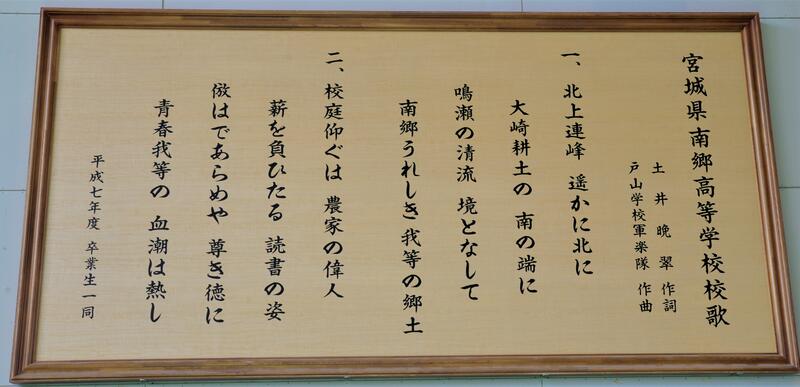 宮城県南郷高等学校校歌
土井晩翠 作詞
戸山学校軍楽隊 作曲
一、北上連峰 遥かに北に
大崎耕土の 南の端に
鳴瀬の清流 境となして
南郷うれしき 我等の郷土
二、校庭仰ぐは 農家の偉人
薪を負ひたる 読書の姿
倣はであらめや 尊き徳に
青春我等の 血潮は熱し
平成七年度 卒業生一同